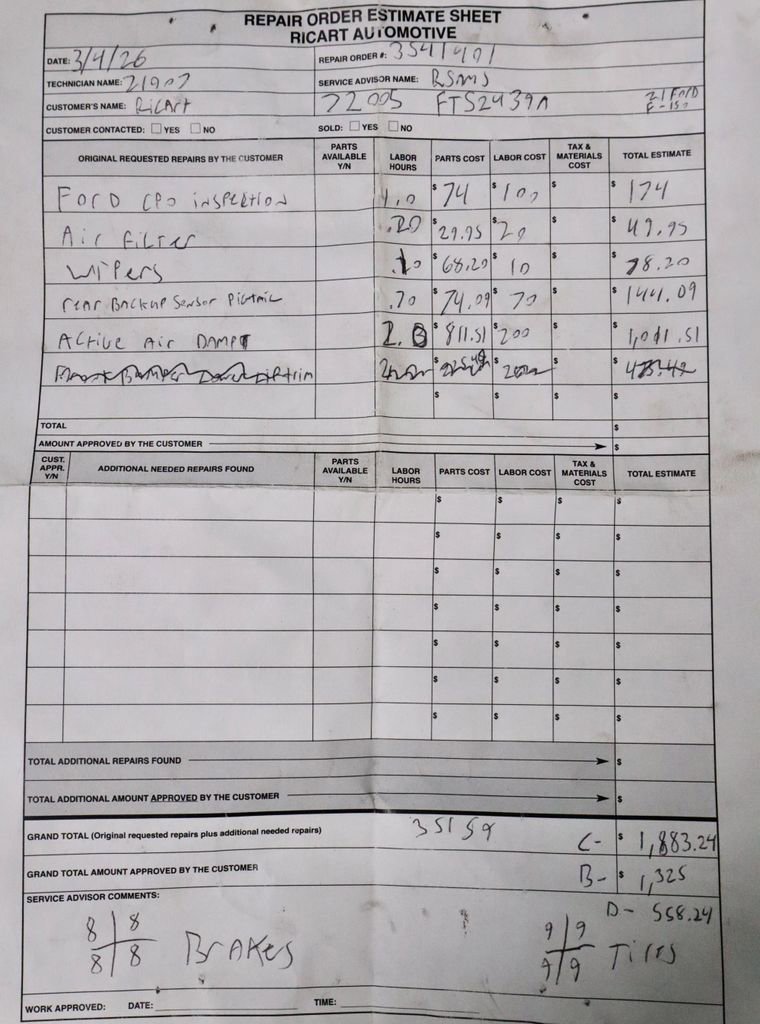 REPAIR ORDER ESTIMATE SHEET
RICART AUTOMOTIVE
DATE: 3/4/26 REPAIR ORDER #: 3541491
TECHNICIAN NAME: 21907 SERVICE ADVISOR NAME: RSMS
CUSTOMER'S NAME: RicArt 72005 FTS2439A 21 Ford F-150
CUSTOMER CONTACTED: YES NO SOLD: YES NO
ORIGINAL REQUESTED REPAIRS BY THE CUSTOMER PARTS AVAILABLE Y/N LABOR HOURS PARTS COST LABOR COST TAX & MATERIALS COST TOTAL ESTIMATE
Ford CPO inspection 1.0 $ 74 $ 100 $ $ 174
Air Filter .20 $ 29.95 $ 20 $ $ 49.95
Wipers .10 $ 68.20 $ 10 $ $ 78.20
rear Backup Sensor .70 $ 74.09 $ 70 $ $ 144.09
Active Air DAMPT 2.0 $ 811.51 $ 200 $ $ 1,011.51
$ $ $ $
$ $ $ $
TOTAL $
AMOUNT APPROVED BY THE CUSTOMER $
CUST. APPR. Y/N ADDITIONAL NEEDED REPAIRS FOUND PARTS AVAILABLE Y/N LABOR HOURS PARTS COST LABOR COST TAX & MATERIALS COST TOTAL ESTIMATE
$ $ $ $
$ $ $ $
$ $ $ $
$ $ $ $
$ $ $ $
$ $ $ $
$ $ $ $
TOTAL ADDITIONAL REPAIRS FOUND $
TOTAL ADDITIONAL AMOUNT APPROVED BY THE CUSTOMER $
GRAND TOTAL (Original requested repairs plus additional needed repairs) 35159 C- $ 1,883.24
GRAND TOTAL AMOUNT APPROVED BY THE CUSTOMER B- $ 1,325
SERVICE ADVISOR COMMENTS: D- 558.24
8 8 9 9
8 8 BrAkes 9 9 Tires
WORK APPROVED: DATE: TIME: